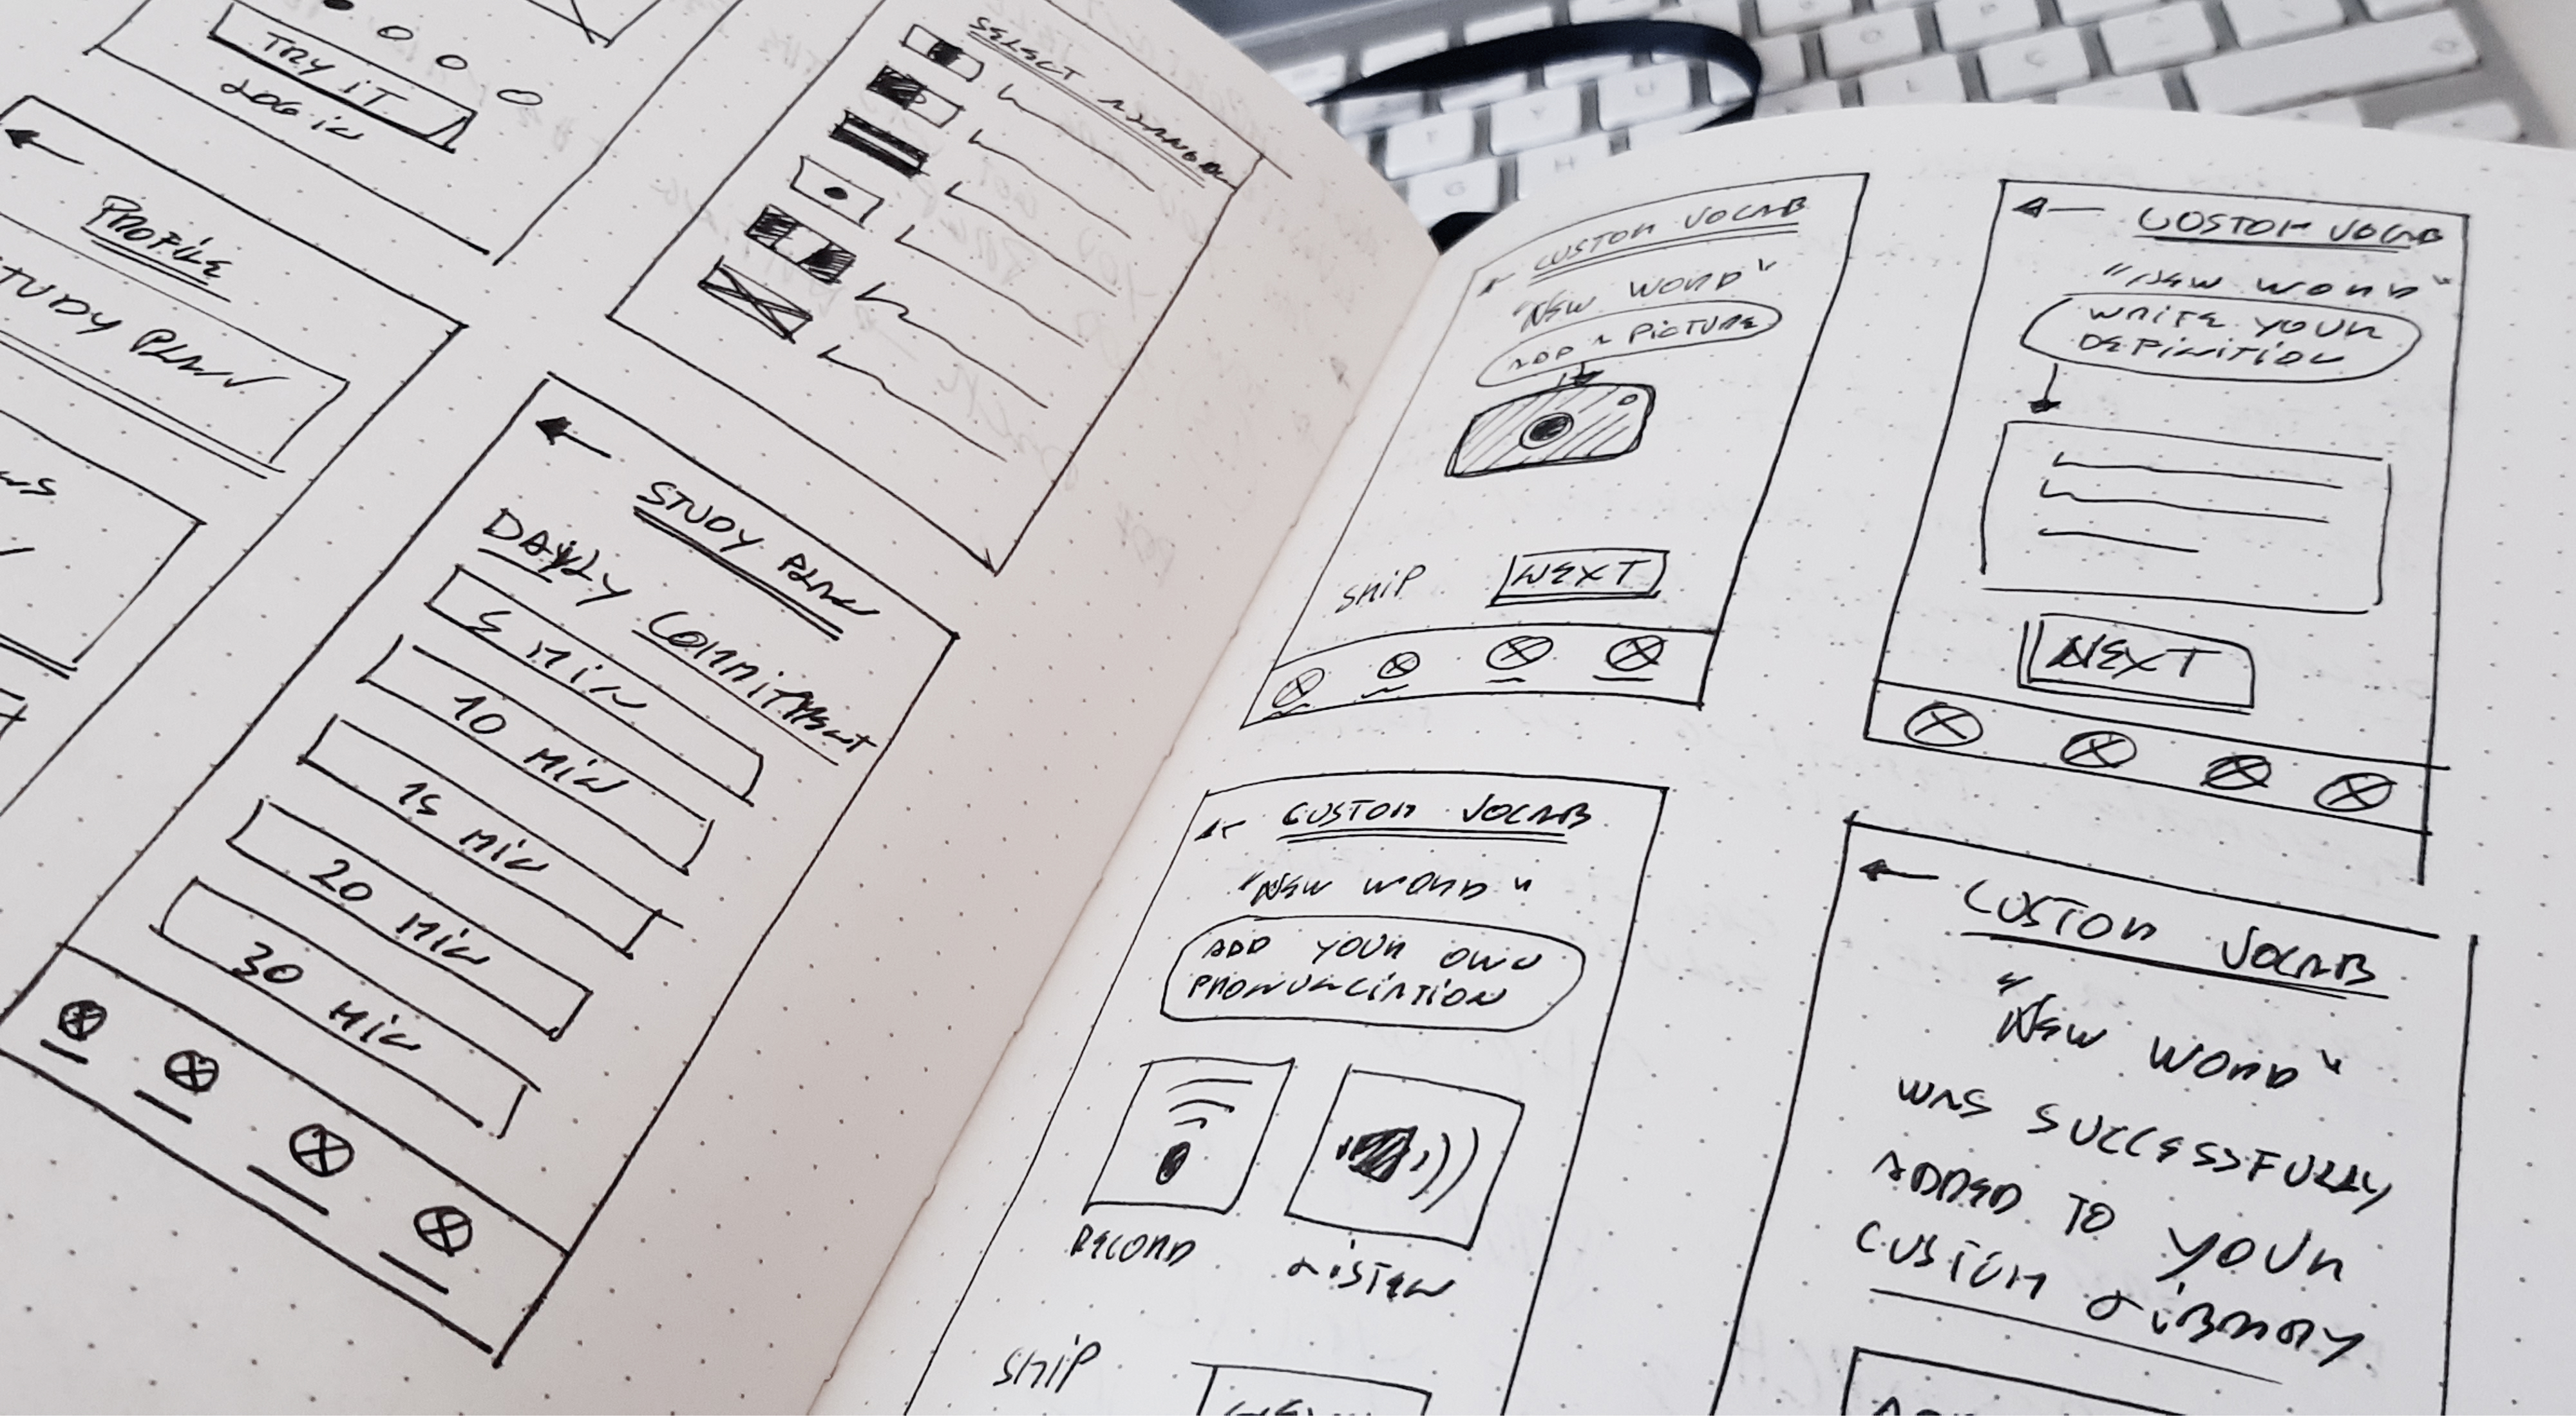 TRY IT
LOG IN
PROFILE
STUDY PLAN
SELECT
STUDY PLAN
DAILY COMMITMENT
5 MIN
10 MIN
15 MIN
20 MIN
30 MIN
CUSTOM VOCAB
"NEW WORD"
ADD A PICTURE
SKIP
NEXT
CUSTOM VOCAB
"NEW WORD"
WRITE YOUR
DEFINITION
NEXT
CUSTOM VOCAB
"NEW WORD"
ADD YOUR OWN
PRONUNCIATION
RECORD
LISTEN
SKIP
CUSTOM VOCAB
"NEW WORD"
WAS SUCCESSFULLY
ADDED TO YOUR
CUSTOM LIBRARY